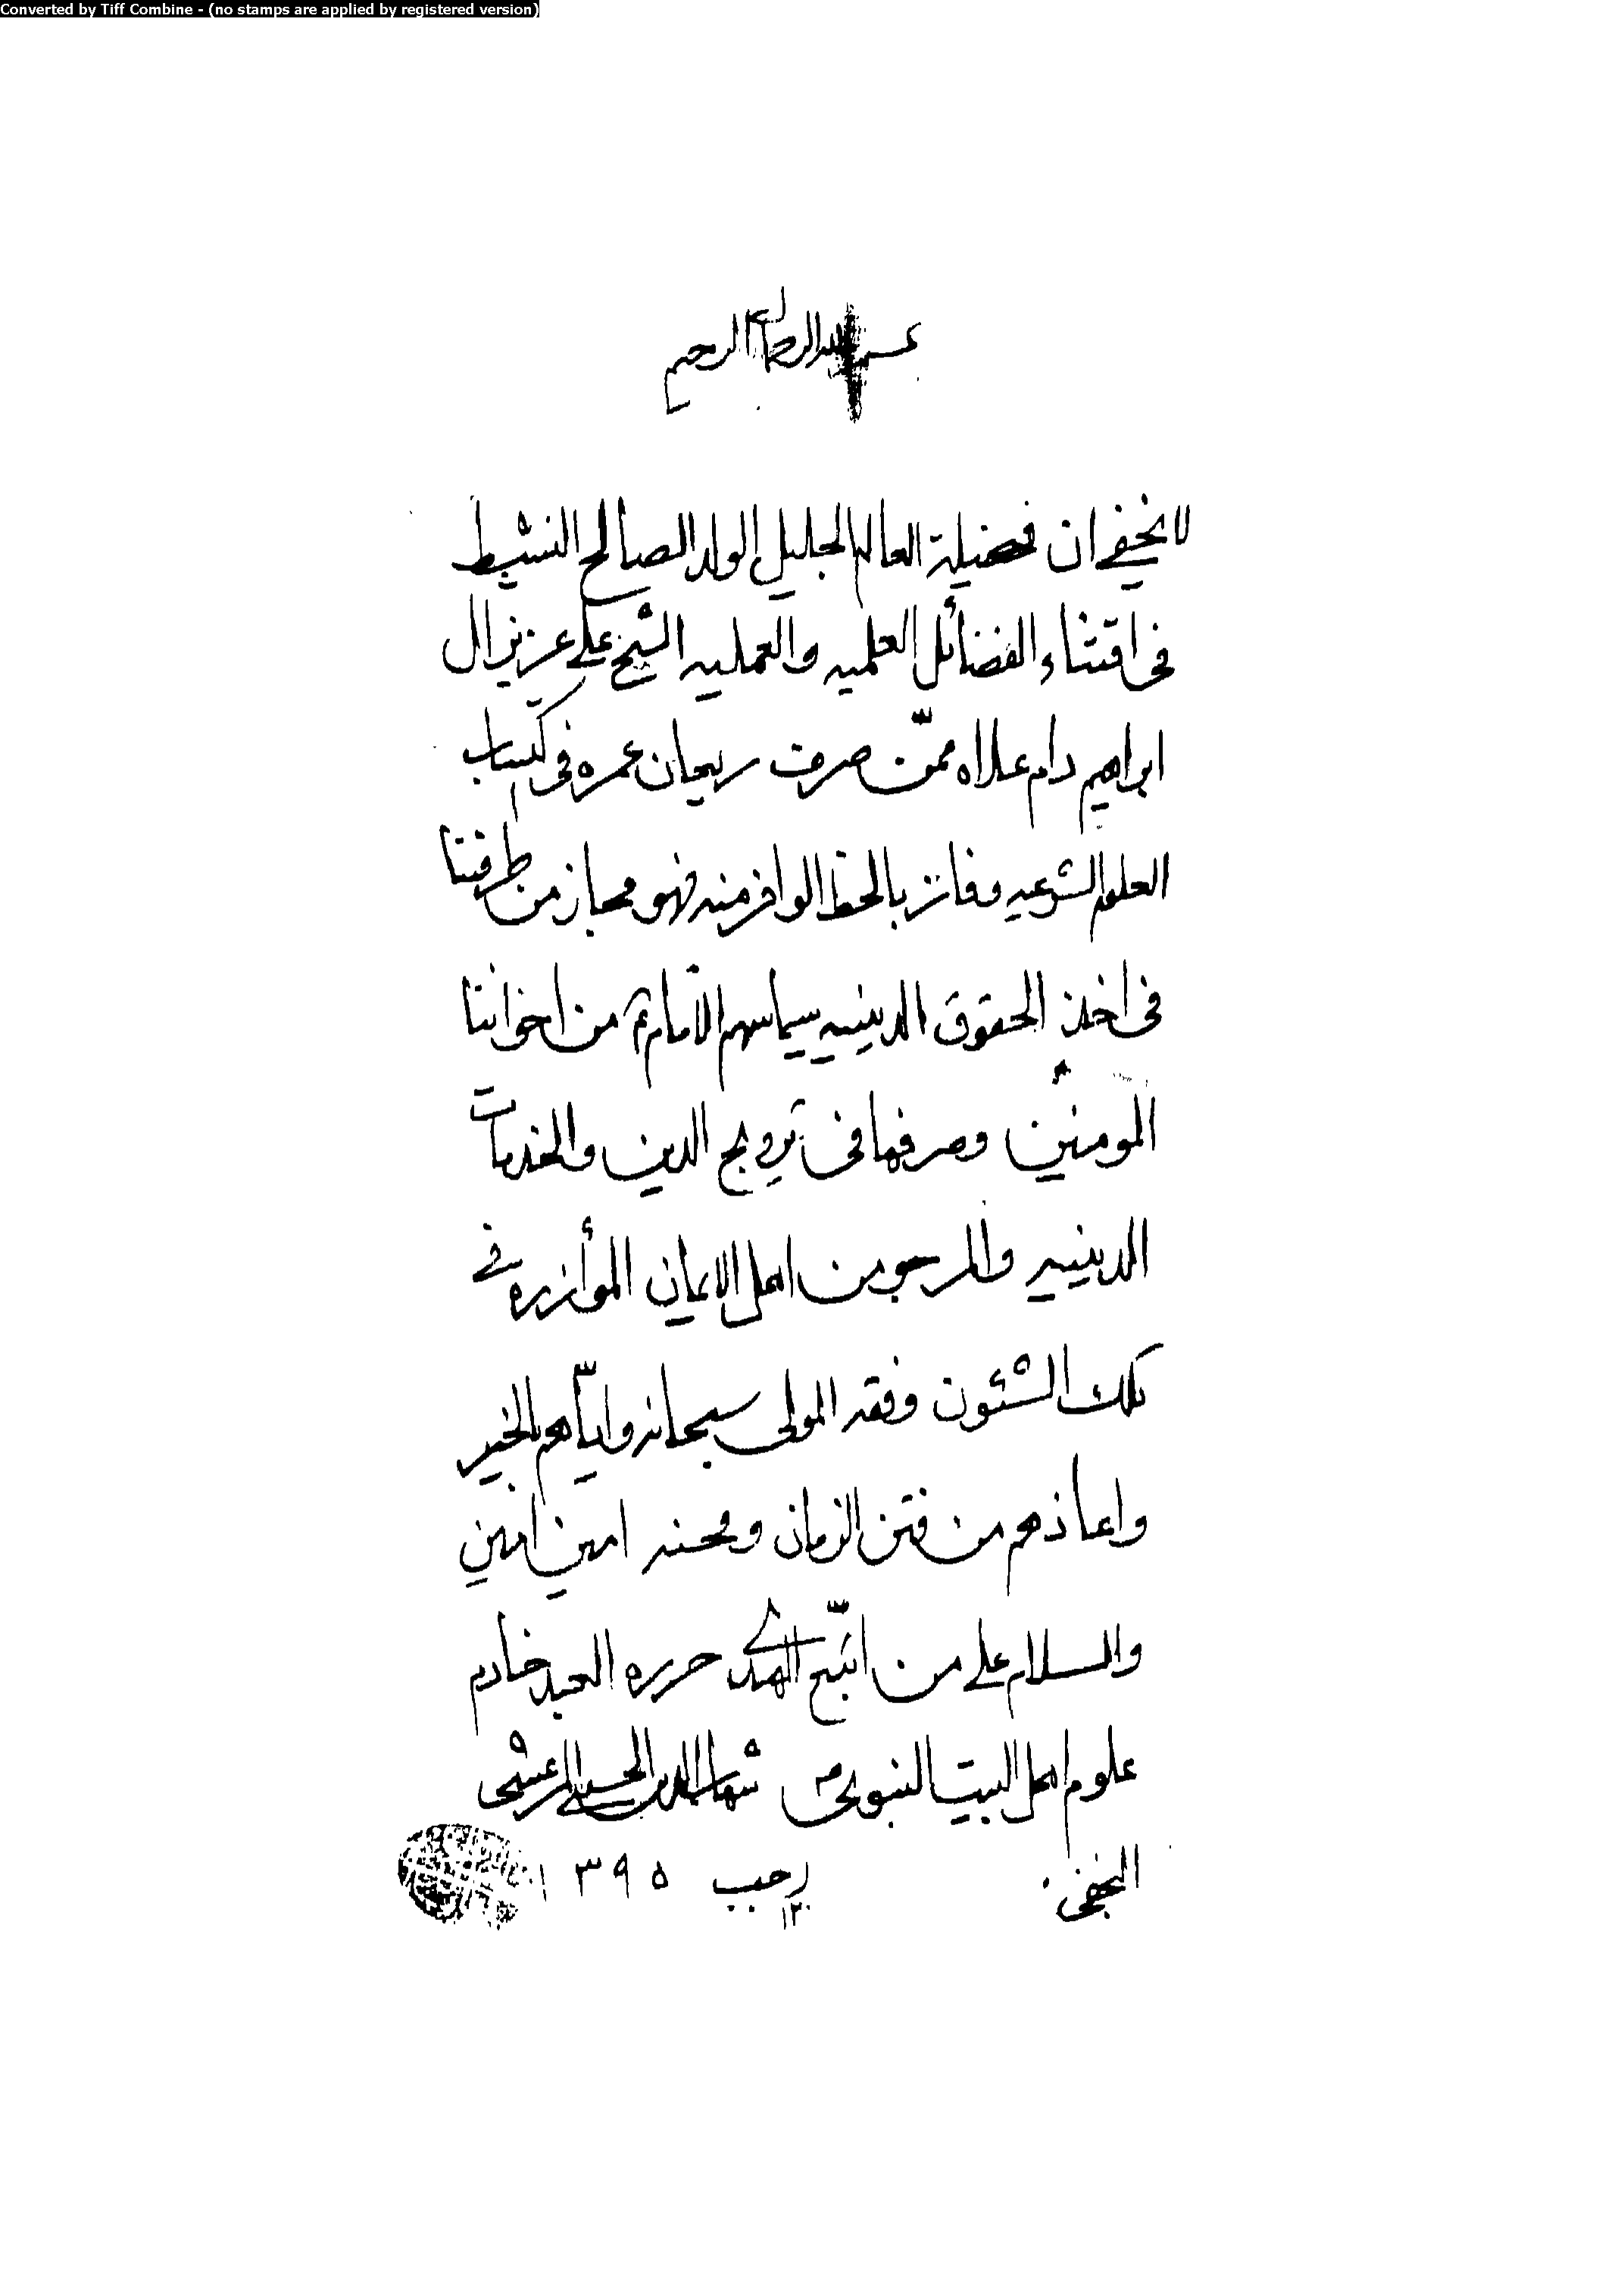 Converted by Tiff Combine - (no stamps are applied by registered version)
الرحيم
لا يخفى ان فضيلة العالم الجليل الولد الصالح النشيط
فى اقتناء الفضائل العلميه والعمليه الشيخ على عزيز ال
ابراهيم دام علاه ممّن صرف ريحان عمره فى اكتساب
العلوم الشرعيه وفائز بالحظ الوافر منه فهو مجاز من طرفنا
فى اخذ الحقوق الدينيه سيما سهم الامام ع من اخواننا
المومنين وصرفها فى ترويج الدين والخدمات
الدينيه والمرجو من اهل الايمان المؤازره فى
تلك الشئون وفقه المولى سبحانه واياهم بالخير
واعاذهم من فتن الزمان ومحنه امين امين
والسلام على من اتبّع الهدى حرره العبد خادم
علوم اهل البيت النبوى ص شهاب الدين الحسينى المرعشى
النجفى . رجب ١٣٩٥